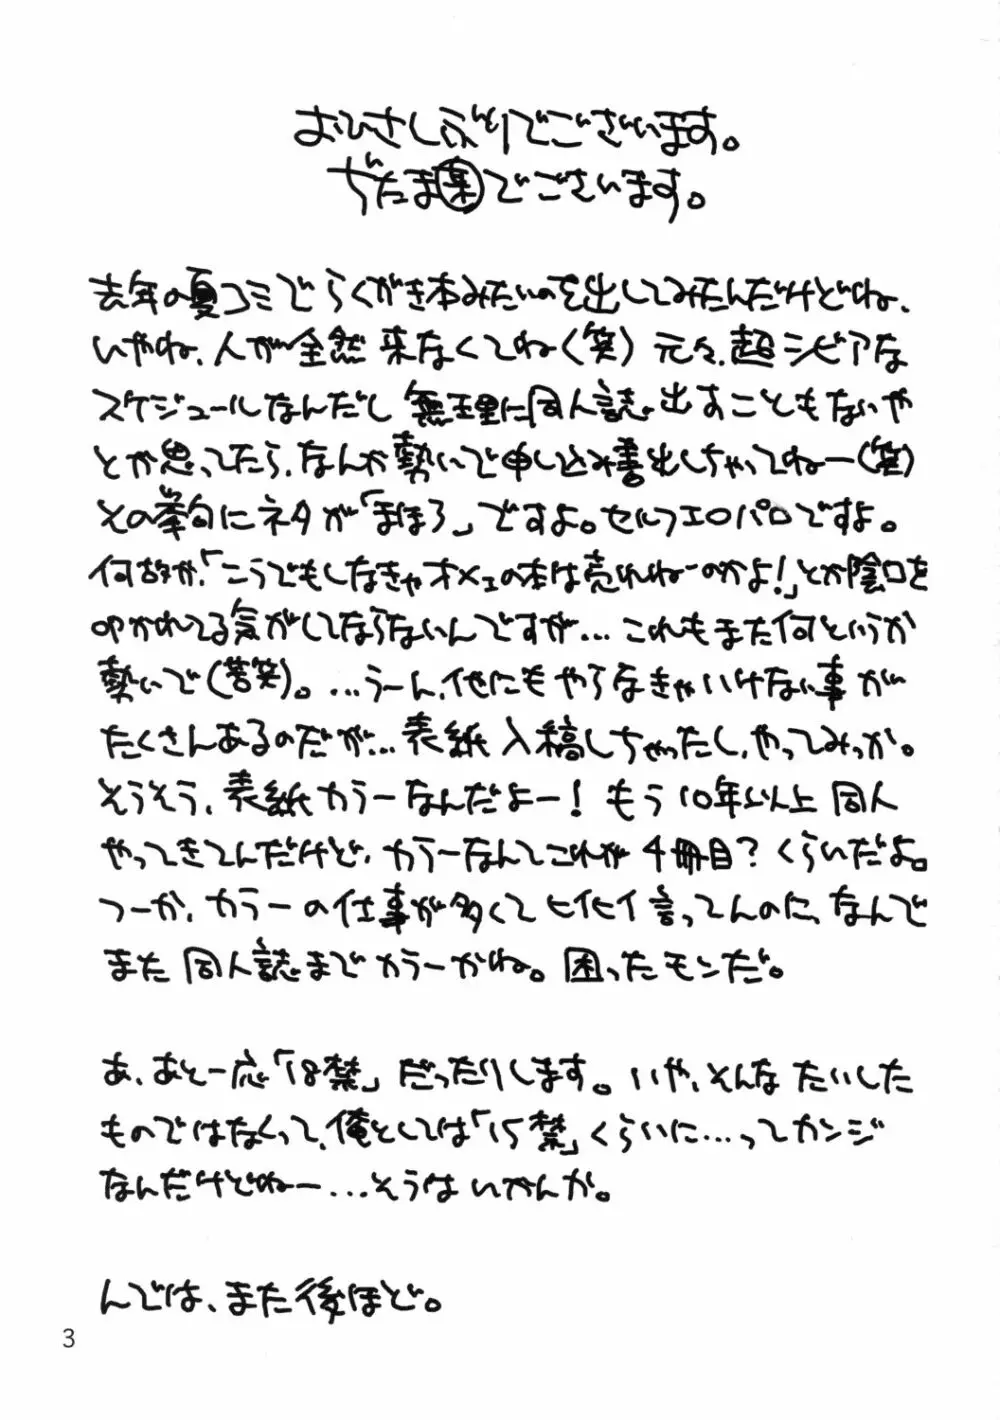 おひさしぶりでございます。
ぢたま㊣でございます。
去年の夏コミでらくがき本みたいのを出してみたんだけどね、
いやね、人が全然来なくてね(笑) 元々、超シビアな
スケジュールなんだし無理に同人誌出すこともないや
とか思ってたら、なんか勢いで申し込み書出しちゃってねー(笑)
その挙句にネタが「まほろ」ですよ。セルフエロパロですよ。
何故か、「こうでもしなきゃオメェの本は売れねーのかよ!」とか陰口を
叩かれてる気がしてならないんですが…これもまた何というか
勢いで(苦笑)。…うーん、他にもやらなきゃいけない事が
たくさんあるのだが…表紙入稿しちゃったし、やってみっか。
そうそう、表紙カラーなんだよー! もう10年以上同人
やってきてんだけど、カラーなんてこれが4冊目?くらいだよ。
つーか、カラーの仕事が多くてヒイヒイ言ってんのに、なんで
また同人誌までカラーかね。困ったモンだ。
あ、あと一応「18禁」だったりします。いや、そんなたいした
ものではなくって、俺としては「15禁」くらいに…ってカンジ
なんだけどねー…そうはいかんか。
んでは、また後ほど。
3